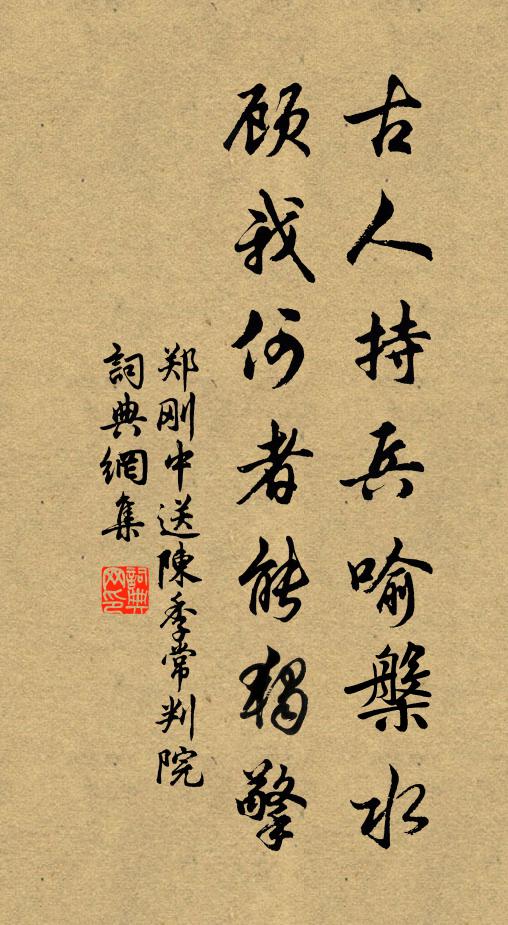 古人持兵喻槃水
顾我何者能独擎
郑刚中送陳季常判院
詞典網集
詞典网印